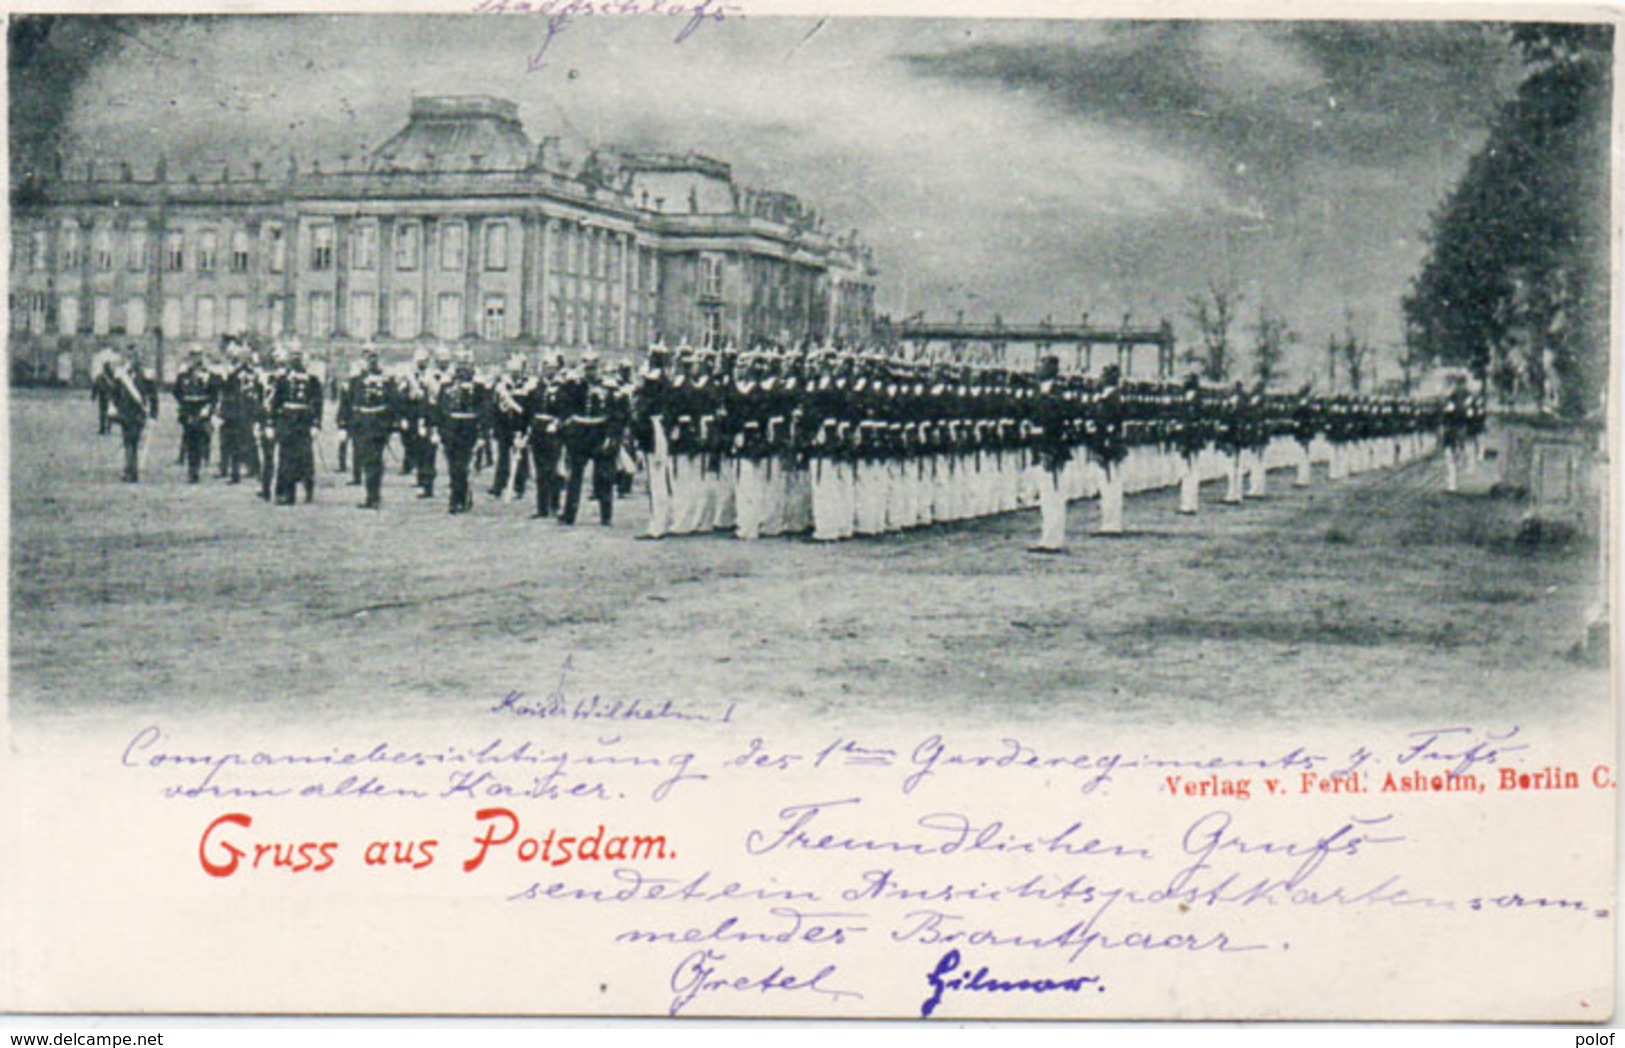 Stadtschloſs.
Kaiser Wilhelm I
Companiebesichtigung des 1ten Garderegiments z. Fuſs
vorm alten Kaiser.
Verlag v. Ferd. Ashelm, Berlin C.
Gruss aus Potsdam.
Freundlichen Gruſs
sendet ein Ansichtspostkartensam=
melndes Brautpaar.
Gretel Hilmar.
delcampe.net
polof